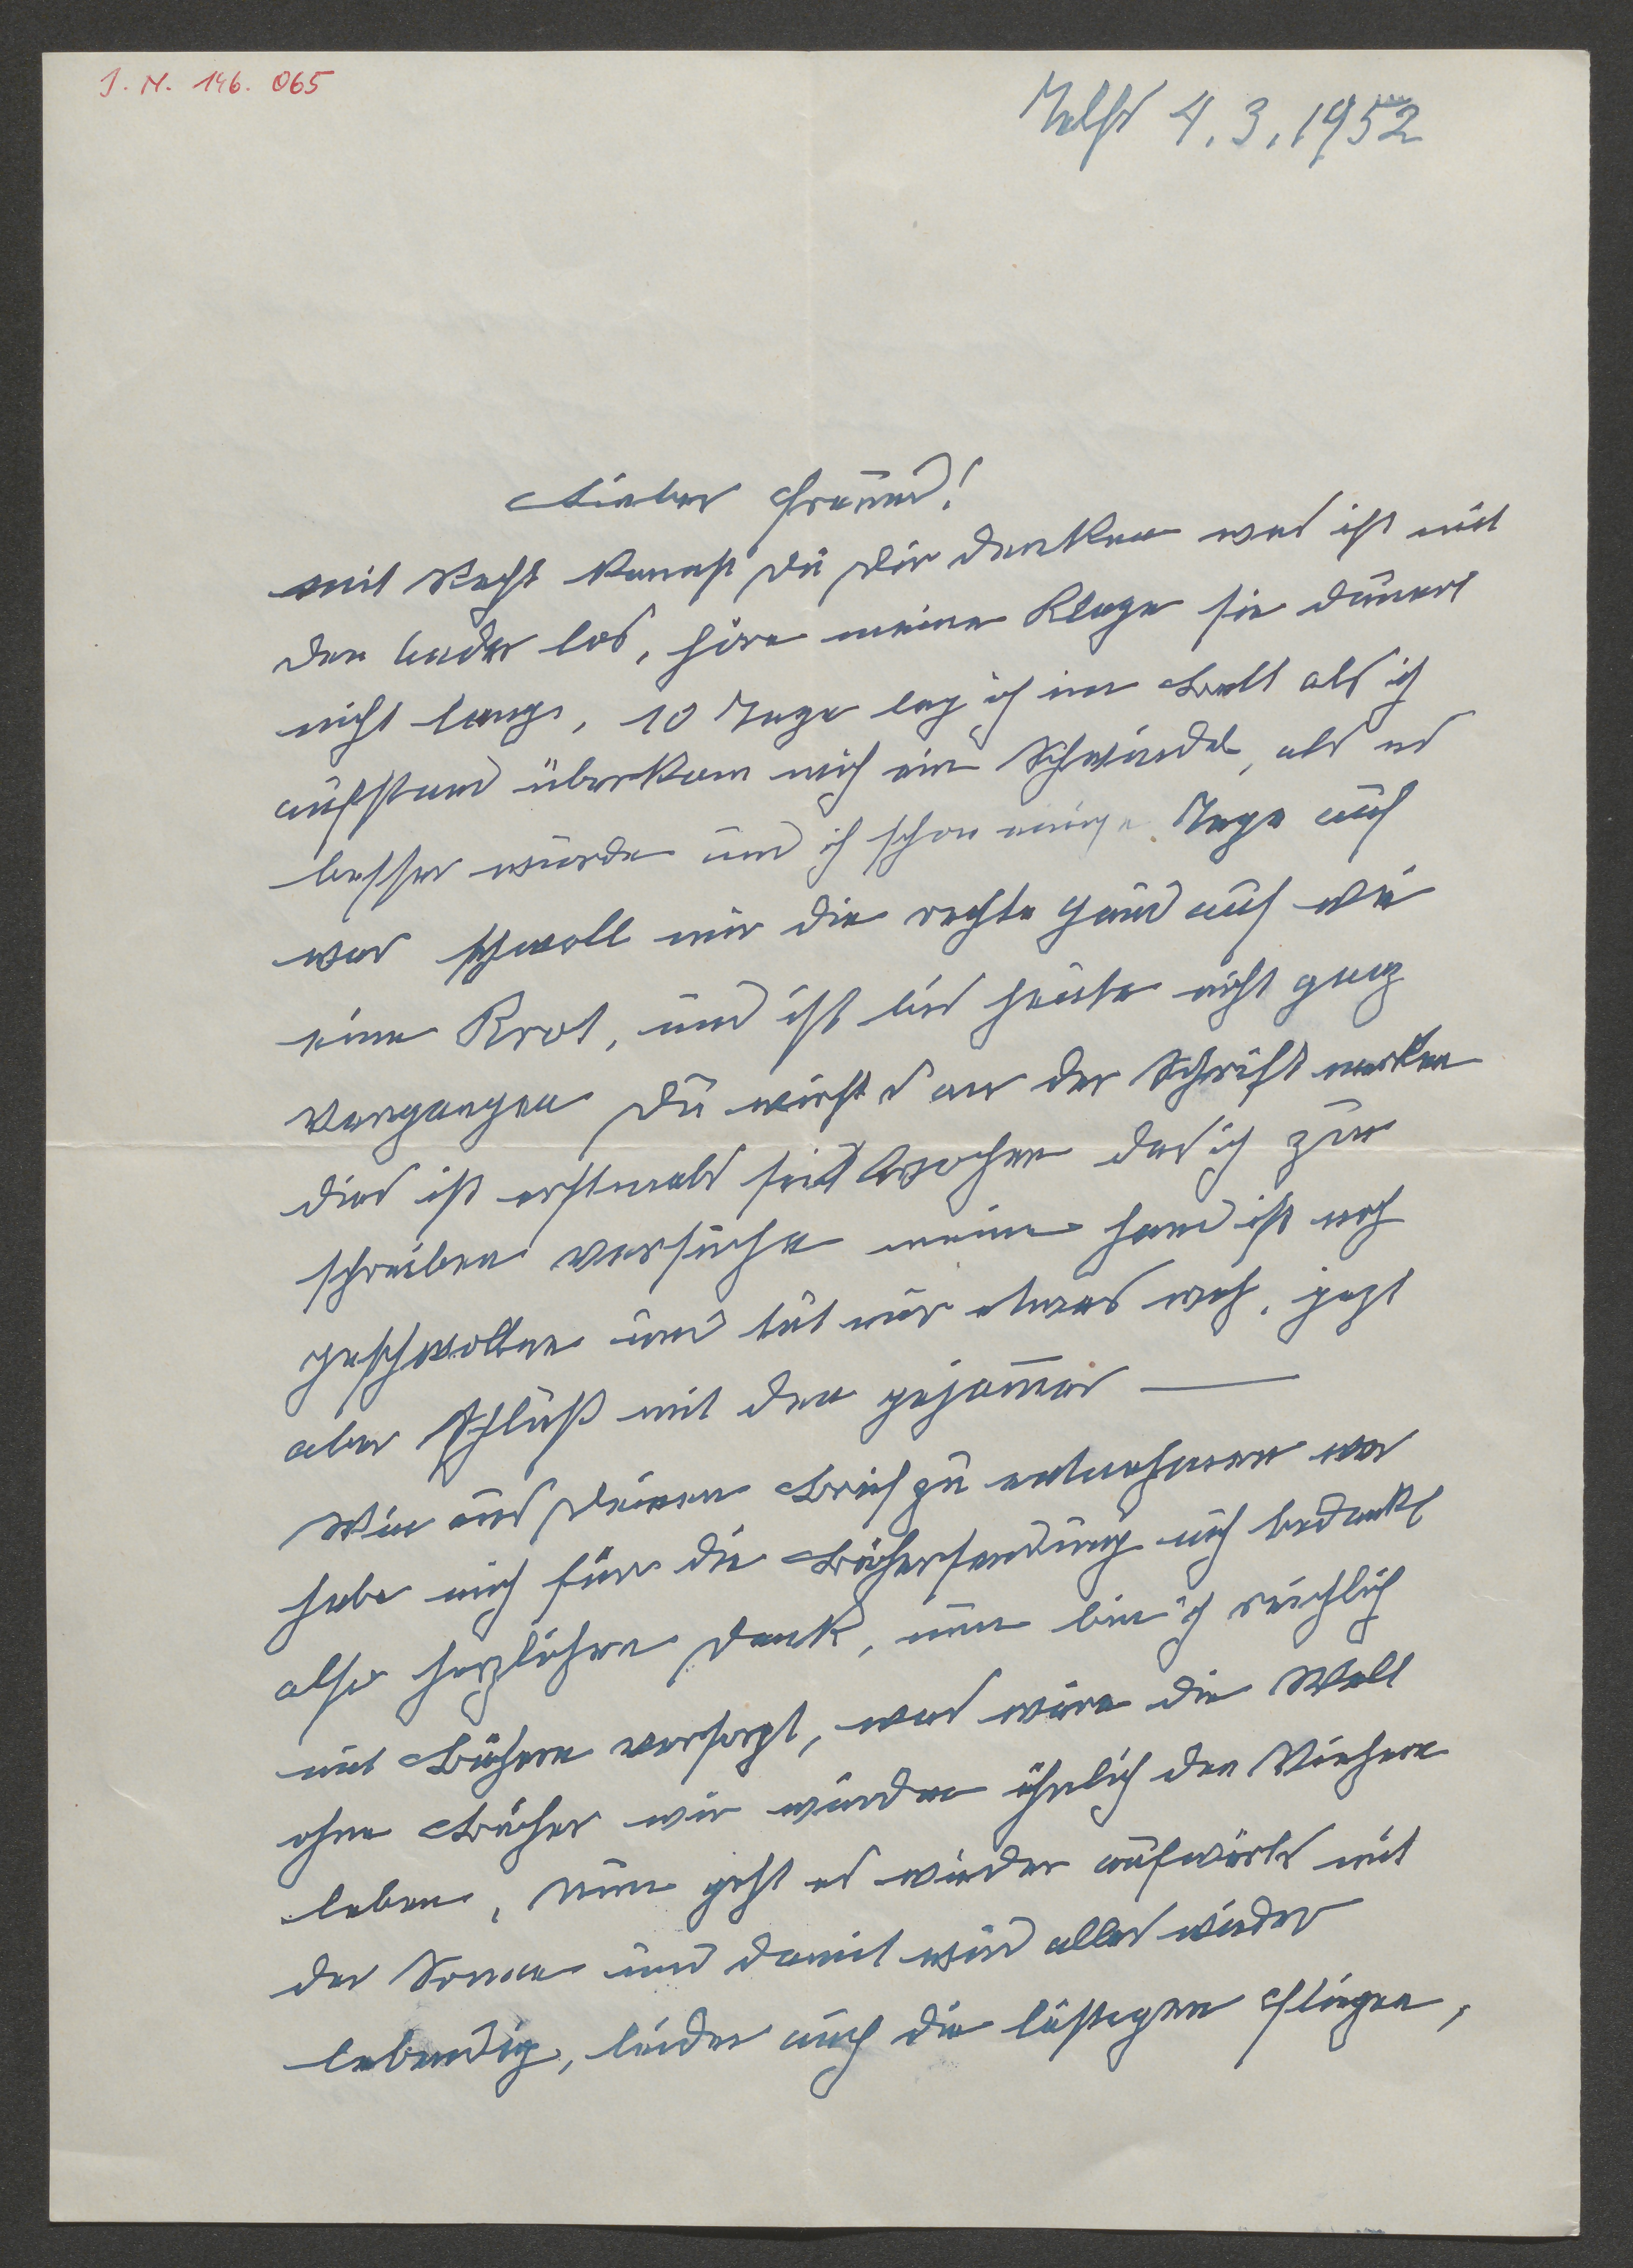 J. N. 146.065
Telfs 4.3.1952
Lieber Freund!
mit Recht kannst Du Dir denken was ist mit
den los, höre meine Klage sie dauert
nicht lange, 10 Tage lag ich im Bett als ich
aufstand überkam mich ein Schwindel, als es
besser wurde und ich schon einige Tage auf
war schwoll mir die rechte Hand auf wie
eine Krot, und ist bis heute nicht ganz
vergangen Du wirst es an der Schrift merken
dies ist erstmals seit Wochen das ich zu
schreiben versuche meine Hand ist noch
geschwollen und tut mir etwas weh, jezt
aber Schluß mit den gejam̄er —
Wie aus Deinen Brief zu entnehmen war
habe mich für die Büchersendung nich bedankt
also herzlichen Dank, nun bin ich reichlich
mit Büchern versorgt, was wäre die Welt
ohne Bücher wir würden ähnlich den Viehern
leben, nun geht es wieder aufwärts mit
der Sonne und damit wird alles wieder
lebendig, leider auch die lästigen Fliegen,